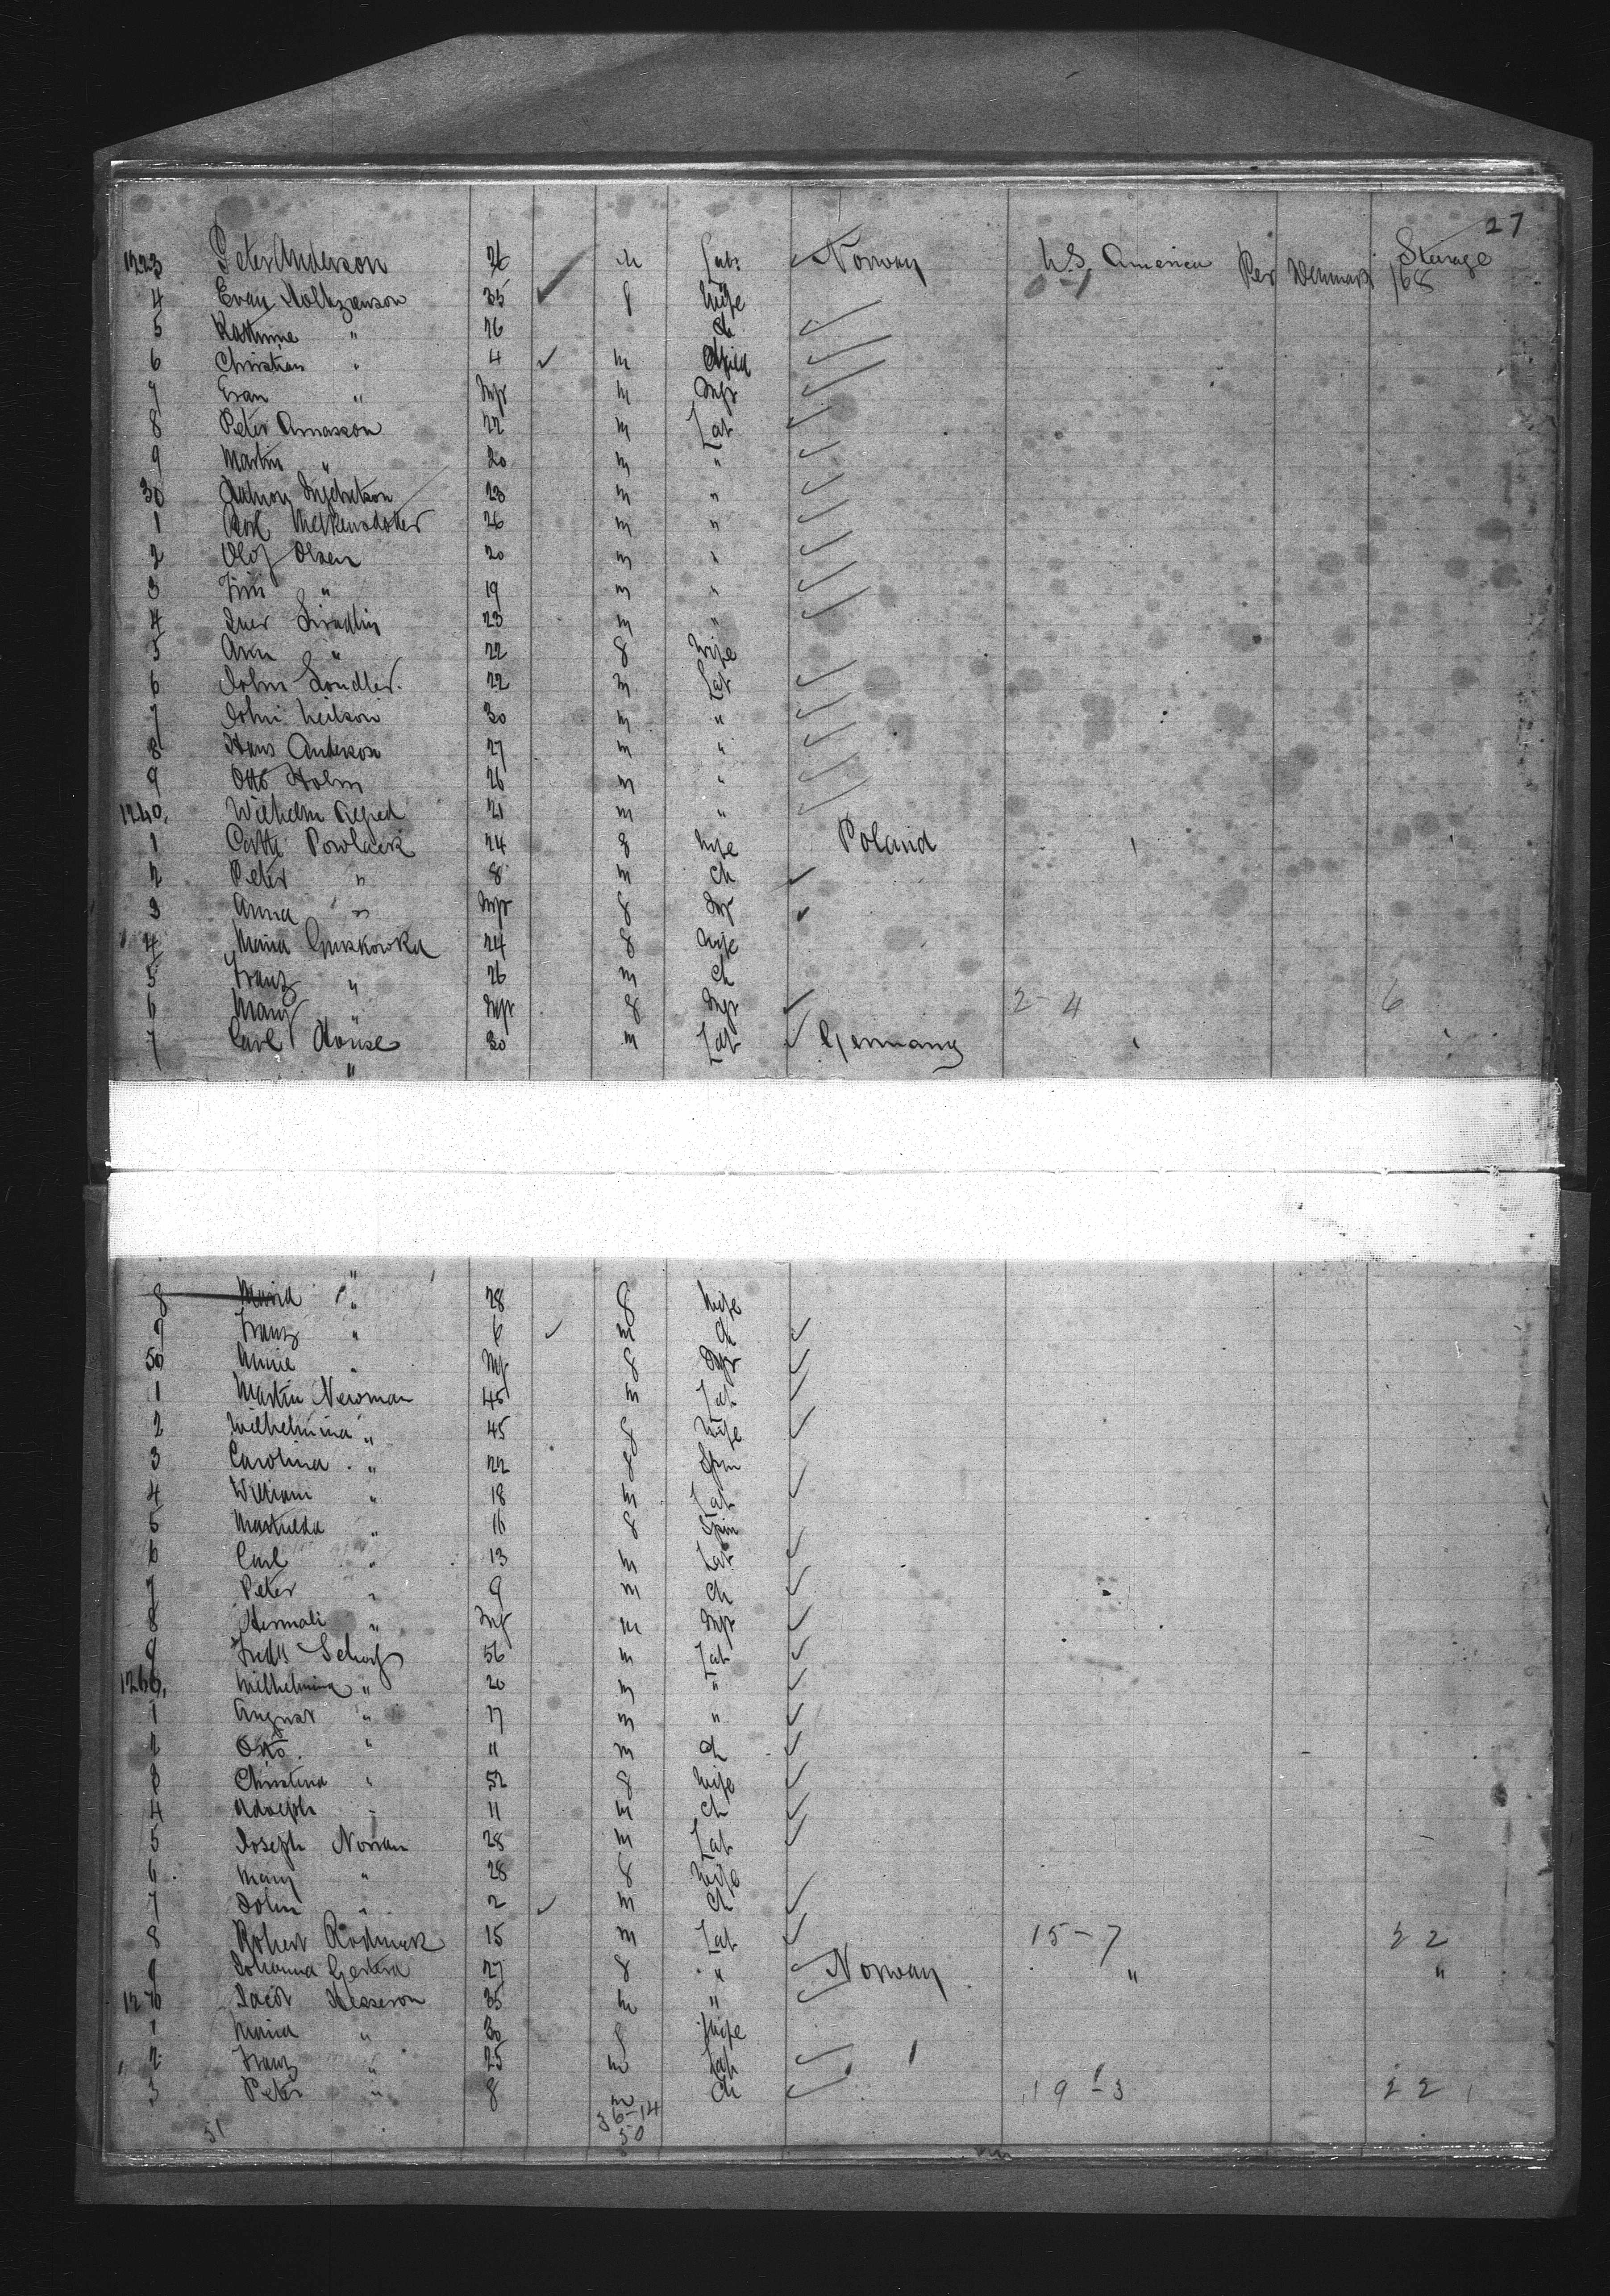 27
1223 Peter Anderson 26 m Lab: Norway U.S. America Per Denmark Steerage
4 Evan 35 f Wife 168
5 Kathrine " 26 ch
6 Christian " 4 m Child
7 Evan " Inft m Inft
8 Peter Amasson 22 m Lab
9 Martin " 20 m "
30 23 m "
1 26 m "
2 Olof Olsen 20 m "
3 " 19 m "
4 23 m "
5 Ann " 22 f Wife
6 John Sondler. 22 m Lab
7 John Neilson 30 m "
8 Hans Anderson 27 m "
9 Otto Holm 26 m "
1240, Wilhelm Alfred 21 m "
1 Cath Powlack 24 f Wife Poland
2 Peter " 8 m ch
3 Anna " Inft f Inf
4 Maria Gruskowka 24 f Wife
5 Franz " 26 m ch
6 Mary " Inft f Inft 2-4 6
7 Carl House 30 m Lab Germany
"
8 Maria " 28 f Wife
9 Franz " 6 m ch
50 Annie " Inf f Inft
1 Martin Newman 45 m Lab
2 Wilhelmina " 45 f Wife
3 Carolina " 22 f Spin
4 William " 18 m Lab
5 Mathilda " 16 f Spin
6 Carl " 13 m Lab
7 Peter " 9 m ch
8 " Inf m Inft
9 Fredk Scharf 56 m Lab
1260, Wilhelmina " 20 m "
1 August " 17 m "
2 Otto " 11 m ch
3 Christina " 52 f Wife
4 Adolph " 11 m ch
5 Joseph Norran 28 m Lab
6 Mary " 28 f Wife
7 John " 2 m ch
8 Robert Rodmak 15 m Lab 15-7 22
9 Johanna 27 f " Norway " "
1270 Jacob 35 m "
1 Maria " 30 f Wife
2 Franz " 25 m Lab
3 Peter " 8 m ch 19-3 22
51 36-14
50